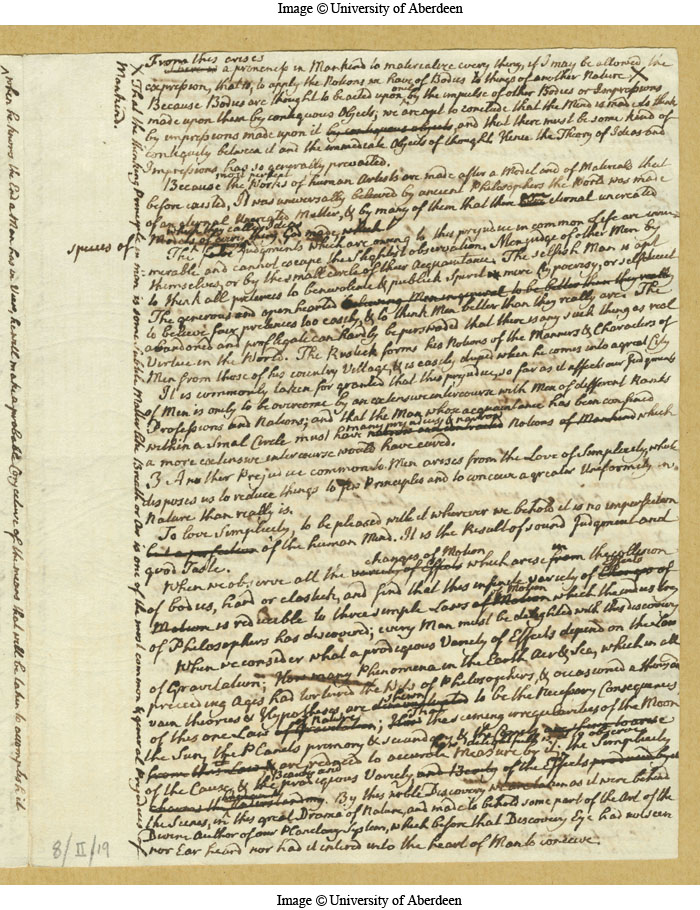 Image © University of Aberdeen
From this arises
There is a proneness in Mankind to materialize every thing, if I may be allowed the
expression, that is, to apply the Notions we have of Bodies to things of another Nature X
Because Bodies are thought to be acted upon only by the impulse of other Bodies or Impressions
made upon them by contiguous Objects; we are apt to conclude that the Mind is made to think
by impressions made upon it by contiguous objects, and that there must be some kind of
contiguity between it and the immediate Objects of thought. Hence the Theory of Ideas and
Impressions has so generally prevailed.
most perfect
Because the Works of human Artists are made after a Model and of Materials that
before existed, It was universally believed by ancient Philosophers the World was made
of an eternal uncreated Matter, & by many of them that there were eternal uncreated
which they called Ideas
Models of every thing God made, which
species of
The false Judgments which are owing to this prejudice in common Life are innu-
merable and cannot escape the slightest observation. Men judge of other Men by
themselves, or by the small circle of their Acquaintance. The selfish Man is apt
to think all pretences to benevolence & publick Spirit mere hypocrisy, or self deceit
The generous and open hearted believing Men in general to be better than they really
to believe fair pretences too easily, & to think Men better than they really are. The
abandoned and profligate can hardly be perswaded that there is any such thing as real
Virtue in the World. The Rustick forms his Notions of the Manners & Characters of
Men from those of his country Village, & is easily duped when he comes into a great City
It is commonly taken for granted that this prejudice, so far as it affects our Judgments
of Men is only to be overcome by an extensive intercourse with Men of different Ranks
Professions and Nations; and that the Man whose acquaintance has been confined
within a Small Circle must have many prejudices & narrow Notions of Mankind which
a more extensive intercourse would have cured.
3 Another Prejudice common to Men arises from the Love of Simplicity, which
disposes us to reduce things to few Principles and to conceive a greater Uniformity in
Nature than really is.
To love Simplicity, to be pleased with it wherever we behold it is no imperfection
but a perfection of the human Mind. It is the Result of sound Judgment and
good Taste.
changes of Motion
When we observe all the variety of Effects which arise from the collision
of bodies, hard or elastick, and find that this infinite variety of Effects
Motion is reducible to three simple Laws of Motion which the industry
of Philosophers has discovered; every Man must be delighted with this discovery
When we consider what a prodigious Variety of Effects depend on the Law
of Gravitation; How many Phenomena in the Earth Air & Sea, which in all
preceding Ages had tortured the Wits of Philosophers, & occasioned a thousand
vain theories & Hypotheses are shewn to be the Necessary Consequences
of this one Law of Nature; that the seeming irregularities of the Moon
the Sun, the Planets primary & secundary & the Comets
from this Law & are reduced to accurate Measure by it; the Simplicity
of the Cause, & the Beauty and prodigious Variety and Beauty of the Effects produced by it
By this noble Discovery Man taken as it were behind
the Scenes, in this great Drama of Nature, and made to behold some part of the Art of the
Divine Author of our Planetary System, which before that Discovery Eye had not seen
nor Ear heard nor had it entered into the heart of Man to conceive.
X That the thinking Principle in man is some Subtle Matter like Breath or Air is one of the most common & general Prejudices of
Mankind.
^ when he knows the End a Man has in View, he will make a probable Conjecture of the means that will be taken to accomplish it
8/II/19
Image © University of Aberdeen